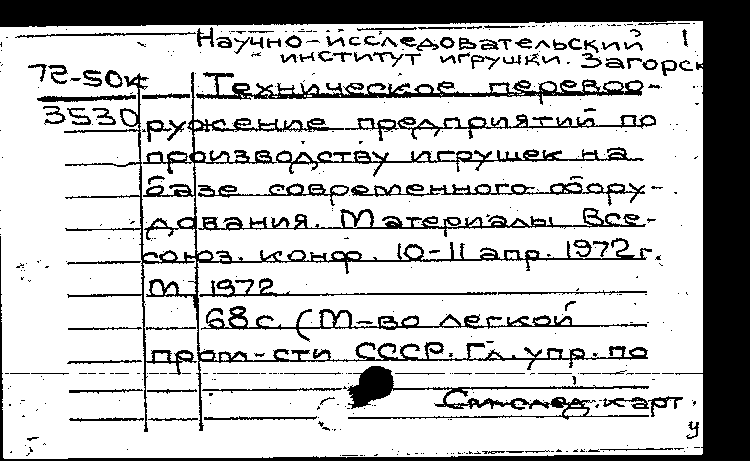 Научно-исследовательский 1
институт игрушки. Загорск
72-50к
3530
Техническое перевоо-
ружение предприятий по
производству игрушек на
базе современного обору-
дования. Материалы Все-
союз. конф. 10-11 апр. 1972г.
М. 1972.
68 с. (М-во легкой
пром-сти СССР. Гл. упр. по
См. след. карт.
у